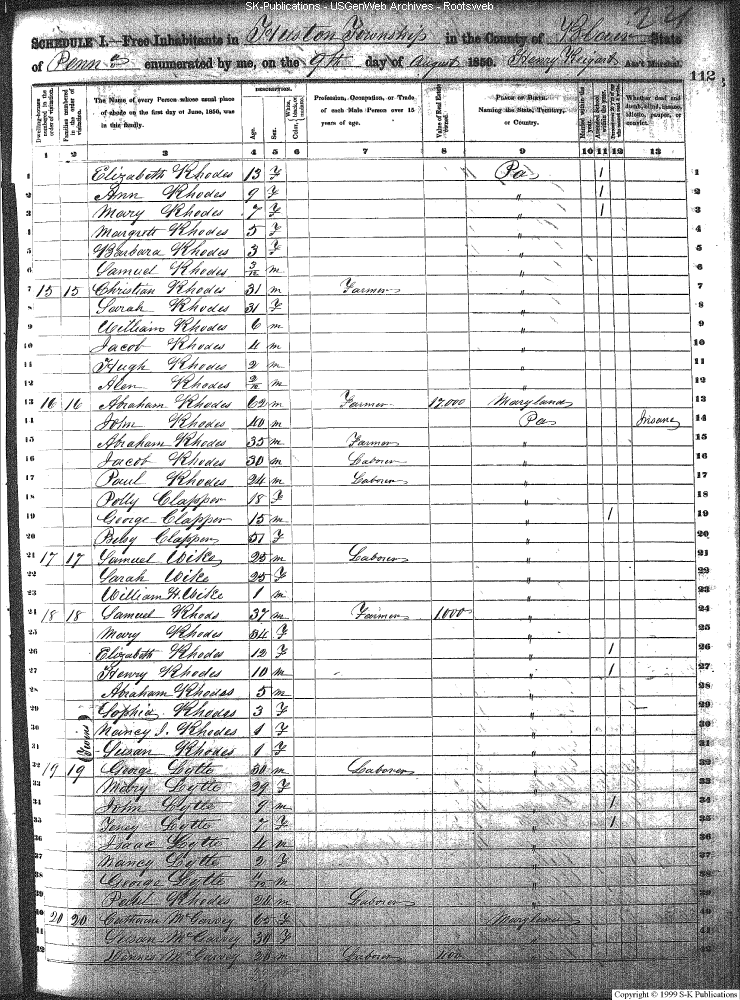 SK-Publications - USGenWeb Archives - Rootsweb
SCHEDULE I.—Free Inhabitants in Huston Township in the County of Blair State
of Penna enumerated by me, on the 9th day of August 1850. Henry Ass't Marshal.
112
Dwelling-houses numbered in the order of visitation.
Families numbered in the order of visitation.
The Name of every Person whose usual place of abode on the first day of June, 1850, was in this family.
DESCRIPTION.
Age.
Sex.
White, black, or mulatto.
Color
Profession, Occupation, or Trade of each Male Person over 15 years of age.
Value of Real Estate owned.
PLACE OF BIRTH. Naming the State, Territory, or Country.
Married within the year.
Attended School within the year.
Whether deaf and dumb, blind, insane, idiotic, pauper, or convict.
1 2 3 4 5 6 7 8 9 10 11 12 13
1 Elizabeth Rhodes 13 F Pa / 1
2 Ann Rhodes 9 F " / 2
3 Mary Rhodes 7 F " / 3
4 Margrett Rhodes 5 F " 4
5 Barbara Rhodes 3 F " 5
6 Samuel Rhodes 3/12 m " 6
7 15 15 Christian Rhodes 31 m Farmer " 7
8 Sarah Rhodes 31 F " 8
9 William Rhodes 6 m " 9
10 Jacob Rhodes 4 m " 10
11 Hugh Rhodes 2 m " 11
12 Alen Rhodes 2/12 m " 12
13 16 16 Abraham Rhodes 62 m Farmer 17,000 Maryland 13
14 John Rhodes 40 m Pa Insane 14
15 Abraham Rhodes 35 m Farmer " 15
16 Jacob Rhodes 30 m Laborer " 16
17 Paul Rhodes 24 m Laborer " 17
18 Polly Clapper 18 F " 18
19 George Clapper 15 m " / 19
20 Betsy Clapper 51 F " 20
21 17 17 Samuel Wike 25 m Laborer " 21
22 Sarah Wike 25 F " 22
23 William H. Wike 1 m " 23
24 18 18 Samuel Rhods 37 m Farmer 1000 " 24
25 Mary Rhodes 34 F " 25
26 Elizabeth Rhodes 12 F " / 26
27 Henry Rhodes 10 m " / 27
28 Abraham Rhodes 5 m " 28
29 Sophia Rhodes 3 F " 29
30 (Twins) Nancy J. Rhodes 1 F " 30
31 Susan Rhodes 1 F " 31
32 19 19 George Lytle 30 m Laborer " 32
33 Mary Lytle 29 F " 33
34 John Lytle 9 m " / 34
35 Lytle 7 F " / 35
36 Isaac Lytle 4 m " 36
37 Nancy Lytle 2 F " 37
38 George Lytle 11/12 m " 38
39 Paul Rhodes 26 m Laborer " 39
40 20 20 Catharine McGarvey 65 F Maryland 40
41 Susan McGarvey 30 F " 41
42 McGarvey m Laborer " 42
Copyright © 1999 S-K Publications